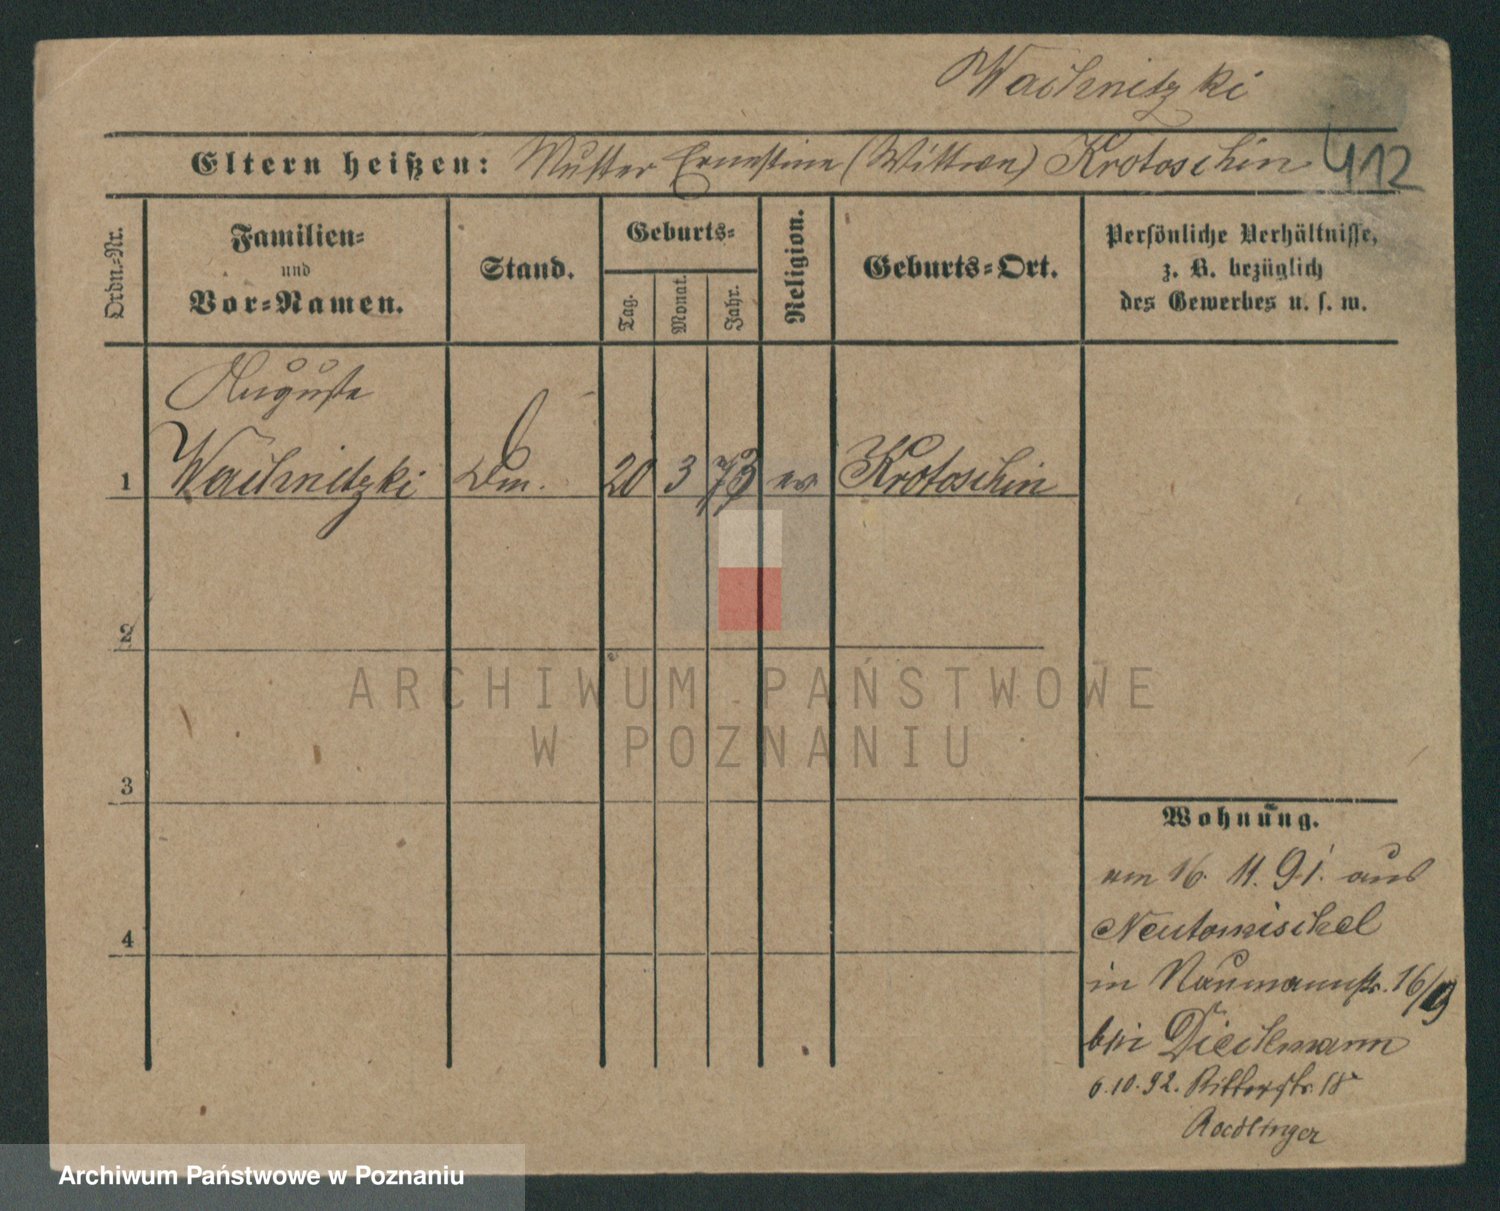 Wachnitzki
Eltern heißen: Mutter Ernestine (Wittwe) Krotoschin
412
Ordn.-Nr.
Familien-
und
Vor-Namen.
Stand.
Geburts-
Tag.
Monat.
Jahr.
Religion.
Geburts-Ort.
Persönliche Verhältnisse,
z. B. bezüglich
des Gewerbes u. s. w.
Auguste
1 Wachnitzki Dm. 20 3 73 ev Krotoschin
2
3
4
Wohnung.
am 16. 11. 91. aus
Neutomischel
in Naumannstr. 16/
bei Dieckmann
6.10.92. Ritterstr. 18
ARCHIWUM PAŃSTWOWE
W POZNANIU
Archiwum Państwowe w Poznaniu